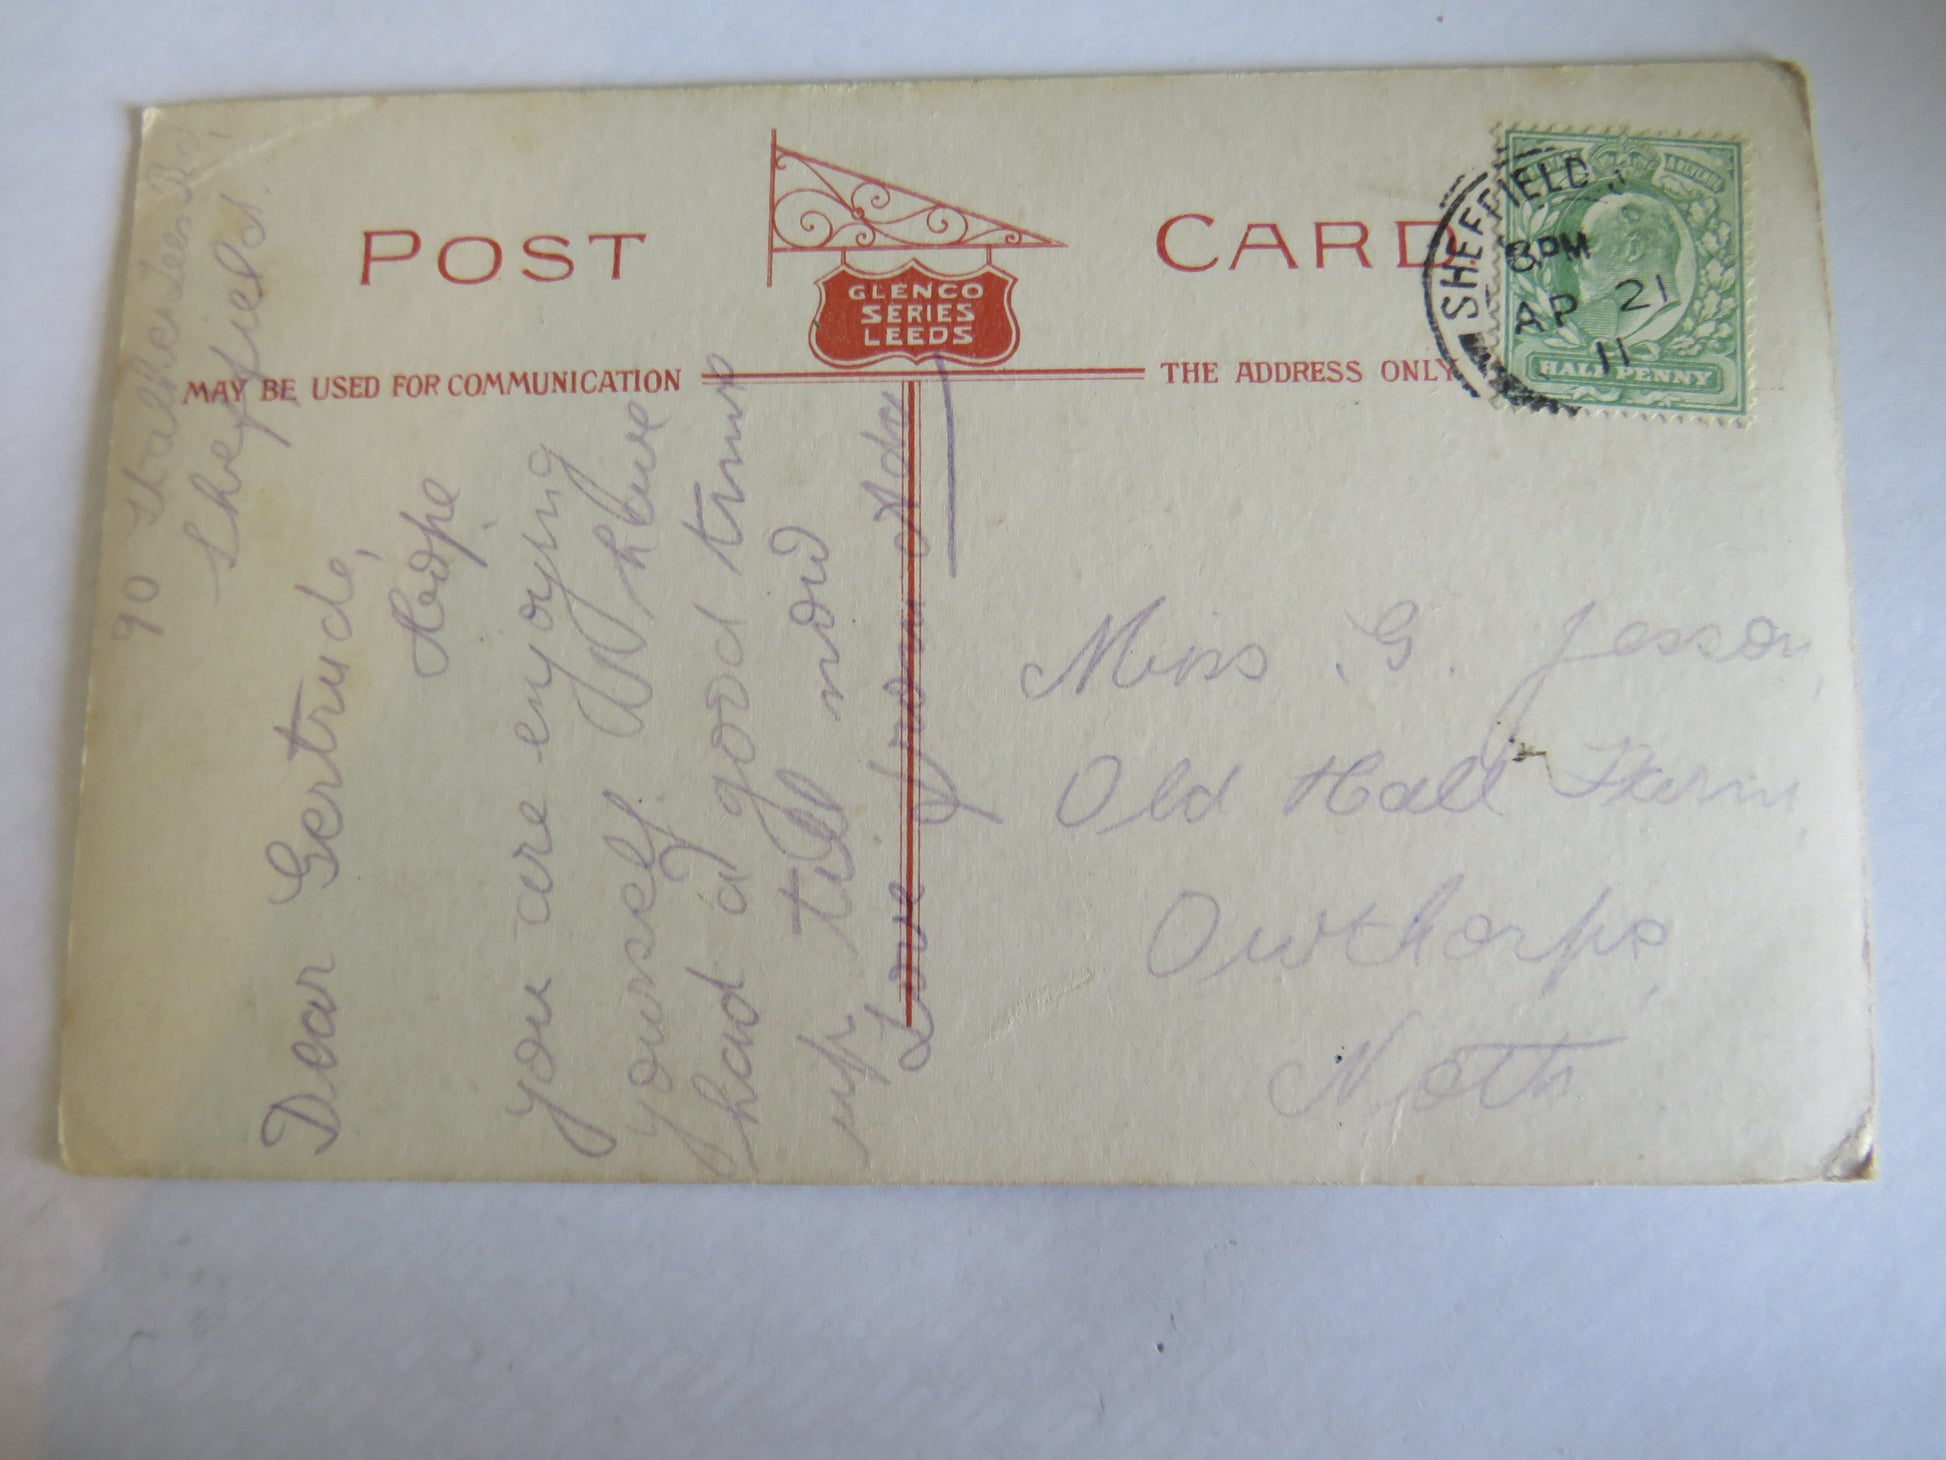 POST CARD
GLENCO
SERIES
LEEDS
MAY BE USED FOR COMMUNICATION
THE ADDRESS ONLY
SHEFFIELD
8.PM
AP 21
11
HALF PENNY
90 Stalker Lees Rd,
Sheffield.
Dear Gertrude,
Hope
you are enjoying
yourself. I have
had a good time
up till now
Love from Ada
Miss G. Jesson,
Old Hall Farm,
Owthorpe,
Notts